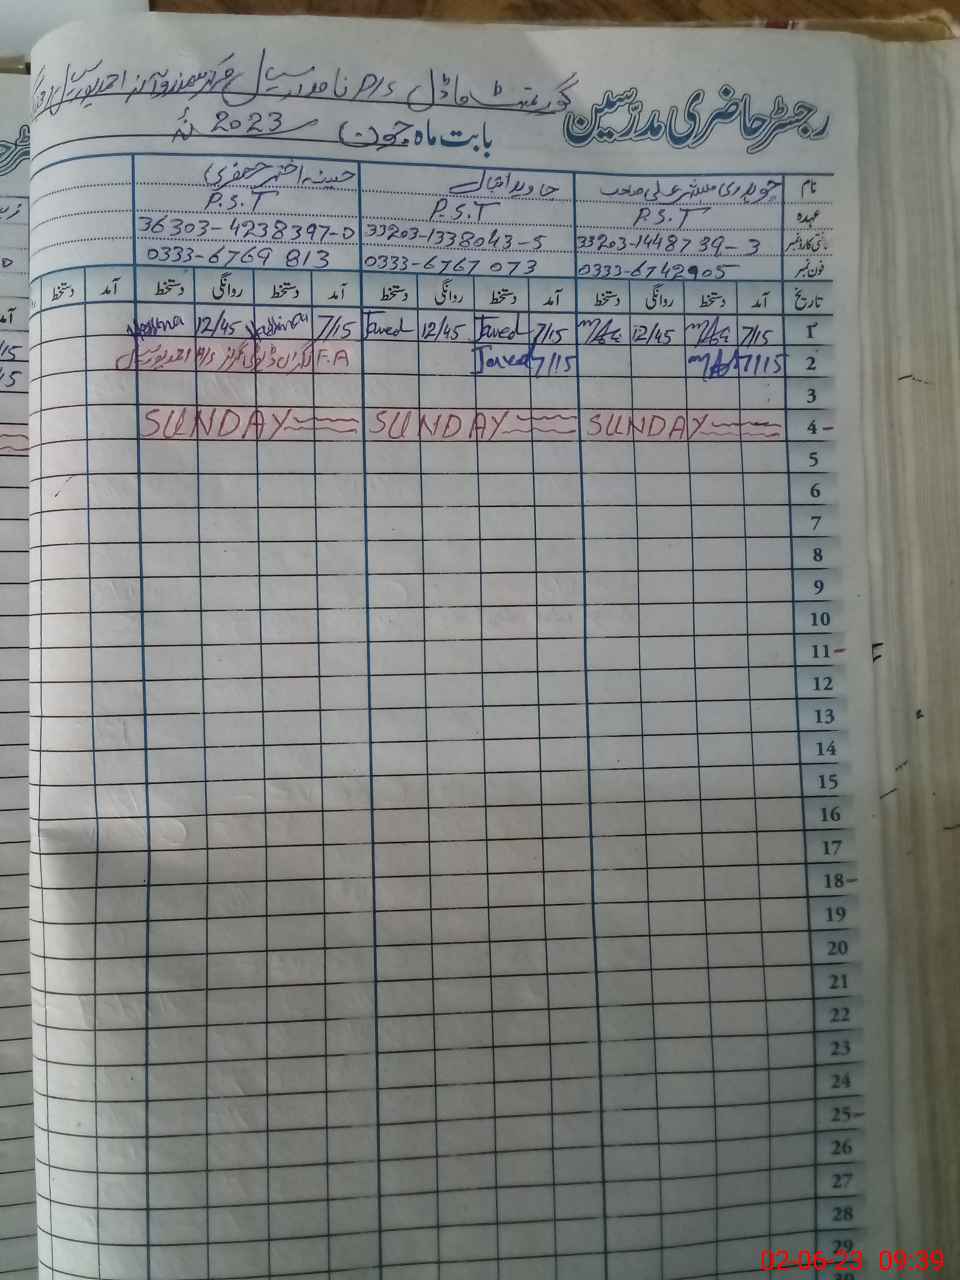 رجسٹر حاضری مدرسین گورنمنٹ ماڈل P/S
بابت ماہ جون 2023 ئہ
نام چوہدری مبشر علی صاحب جاوید اقبال حسینہ اختر جعفری
عہدہ P.S.T P.S.T P.S.T
شناختی کارڈ نمبر 33203-1448739-3 33203-1338043-5 36303-4238397-0
فون نمبر 0333-6742905 0333-6767073 0333-6769813
تاریخ آمد دستخط روانگی دستخط آمد دستخط روانگی دستخط آمد دستخط روانگی دستخط آمد دستخط
1 7/15 12/45 7/15 Javed 12/45 Javed 7/15 12/45
2 7/15 7/15 Javed F.A
3
4 SUNDAY SUNDAY SUNDAY
5
6
7
8
9
10
11
12
13
14
15
16
17
18
19
20
21
22
23
24
25
26
27
28
29
02-06-23 09:39